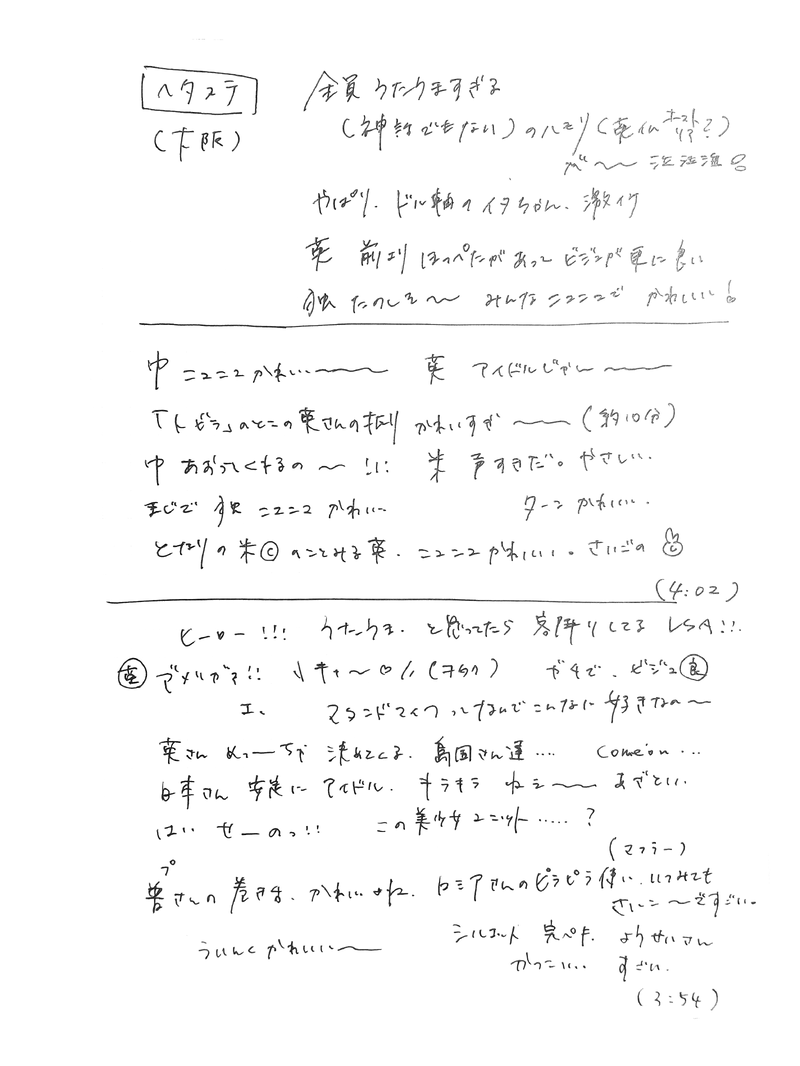 ヘタステ
(大阪)
全員 うたうますぎる
(神話でもない)のハモリ(英仏 ホスト
が〜〜 泣泣泣
やっぱり、ドル軸のイタちゃん、激イケ
英 前より ほっぺたがあって ビジュが更に良い
独 たのしそ〜 みんなニコニコで かわいい!
中 ニコニコかわい〜〜 英 アイドルじゃん〜〜
「トビラ」のとこの英さんの かわいすぎ〜〜(約10分)
中 あおってくれるの〜!!! 米 声すきだ。やさしい.
まじで 独 ニコニコ かわいい ターン かわいい.
となりの米©のことみる英. ニコニコかわいい。さいごの
(4:02)
ヒーロー!!! うたうま. と思ってたら 客降りしてる USA!!!
英 アメリカで!! キャ〜♡ ガチで、ビジュ良
え、 スタンドマイクってなんでこんなに好きなの〜
英さん めっちゃ 決めてくる. 島国さん達.... come'on...
日本さん 安定に アイドル. キラキラ ねぇ〜 あざとい.
はい せーのっ!! この美少女ユニット.....?
プ
普さんの巻き舌、かわいいよね. ロシアさんのピラピラ使い、いつみても
(マフラー)
さいこ〜ですごい.
ういんくかわいい〜 シルエット 完ペキ. よりせいさん
かっこいい.. すごい.
(3:54)